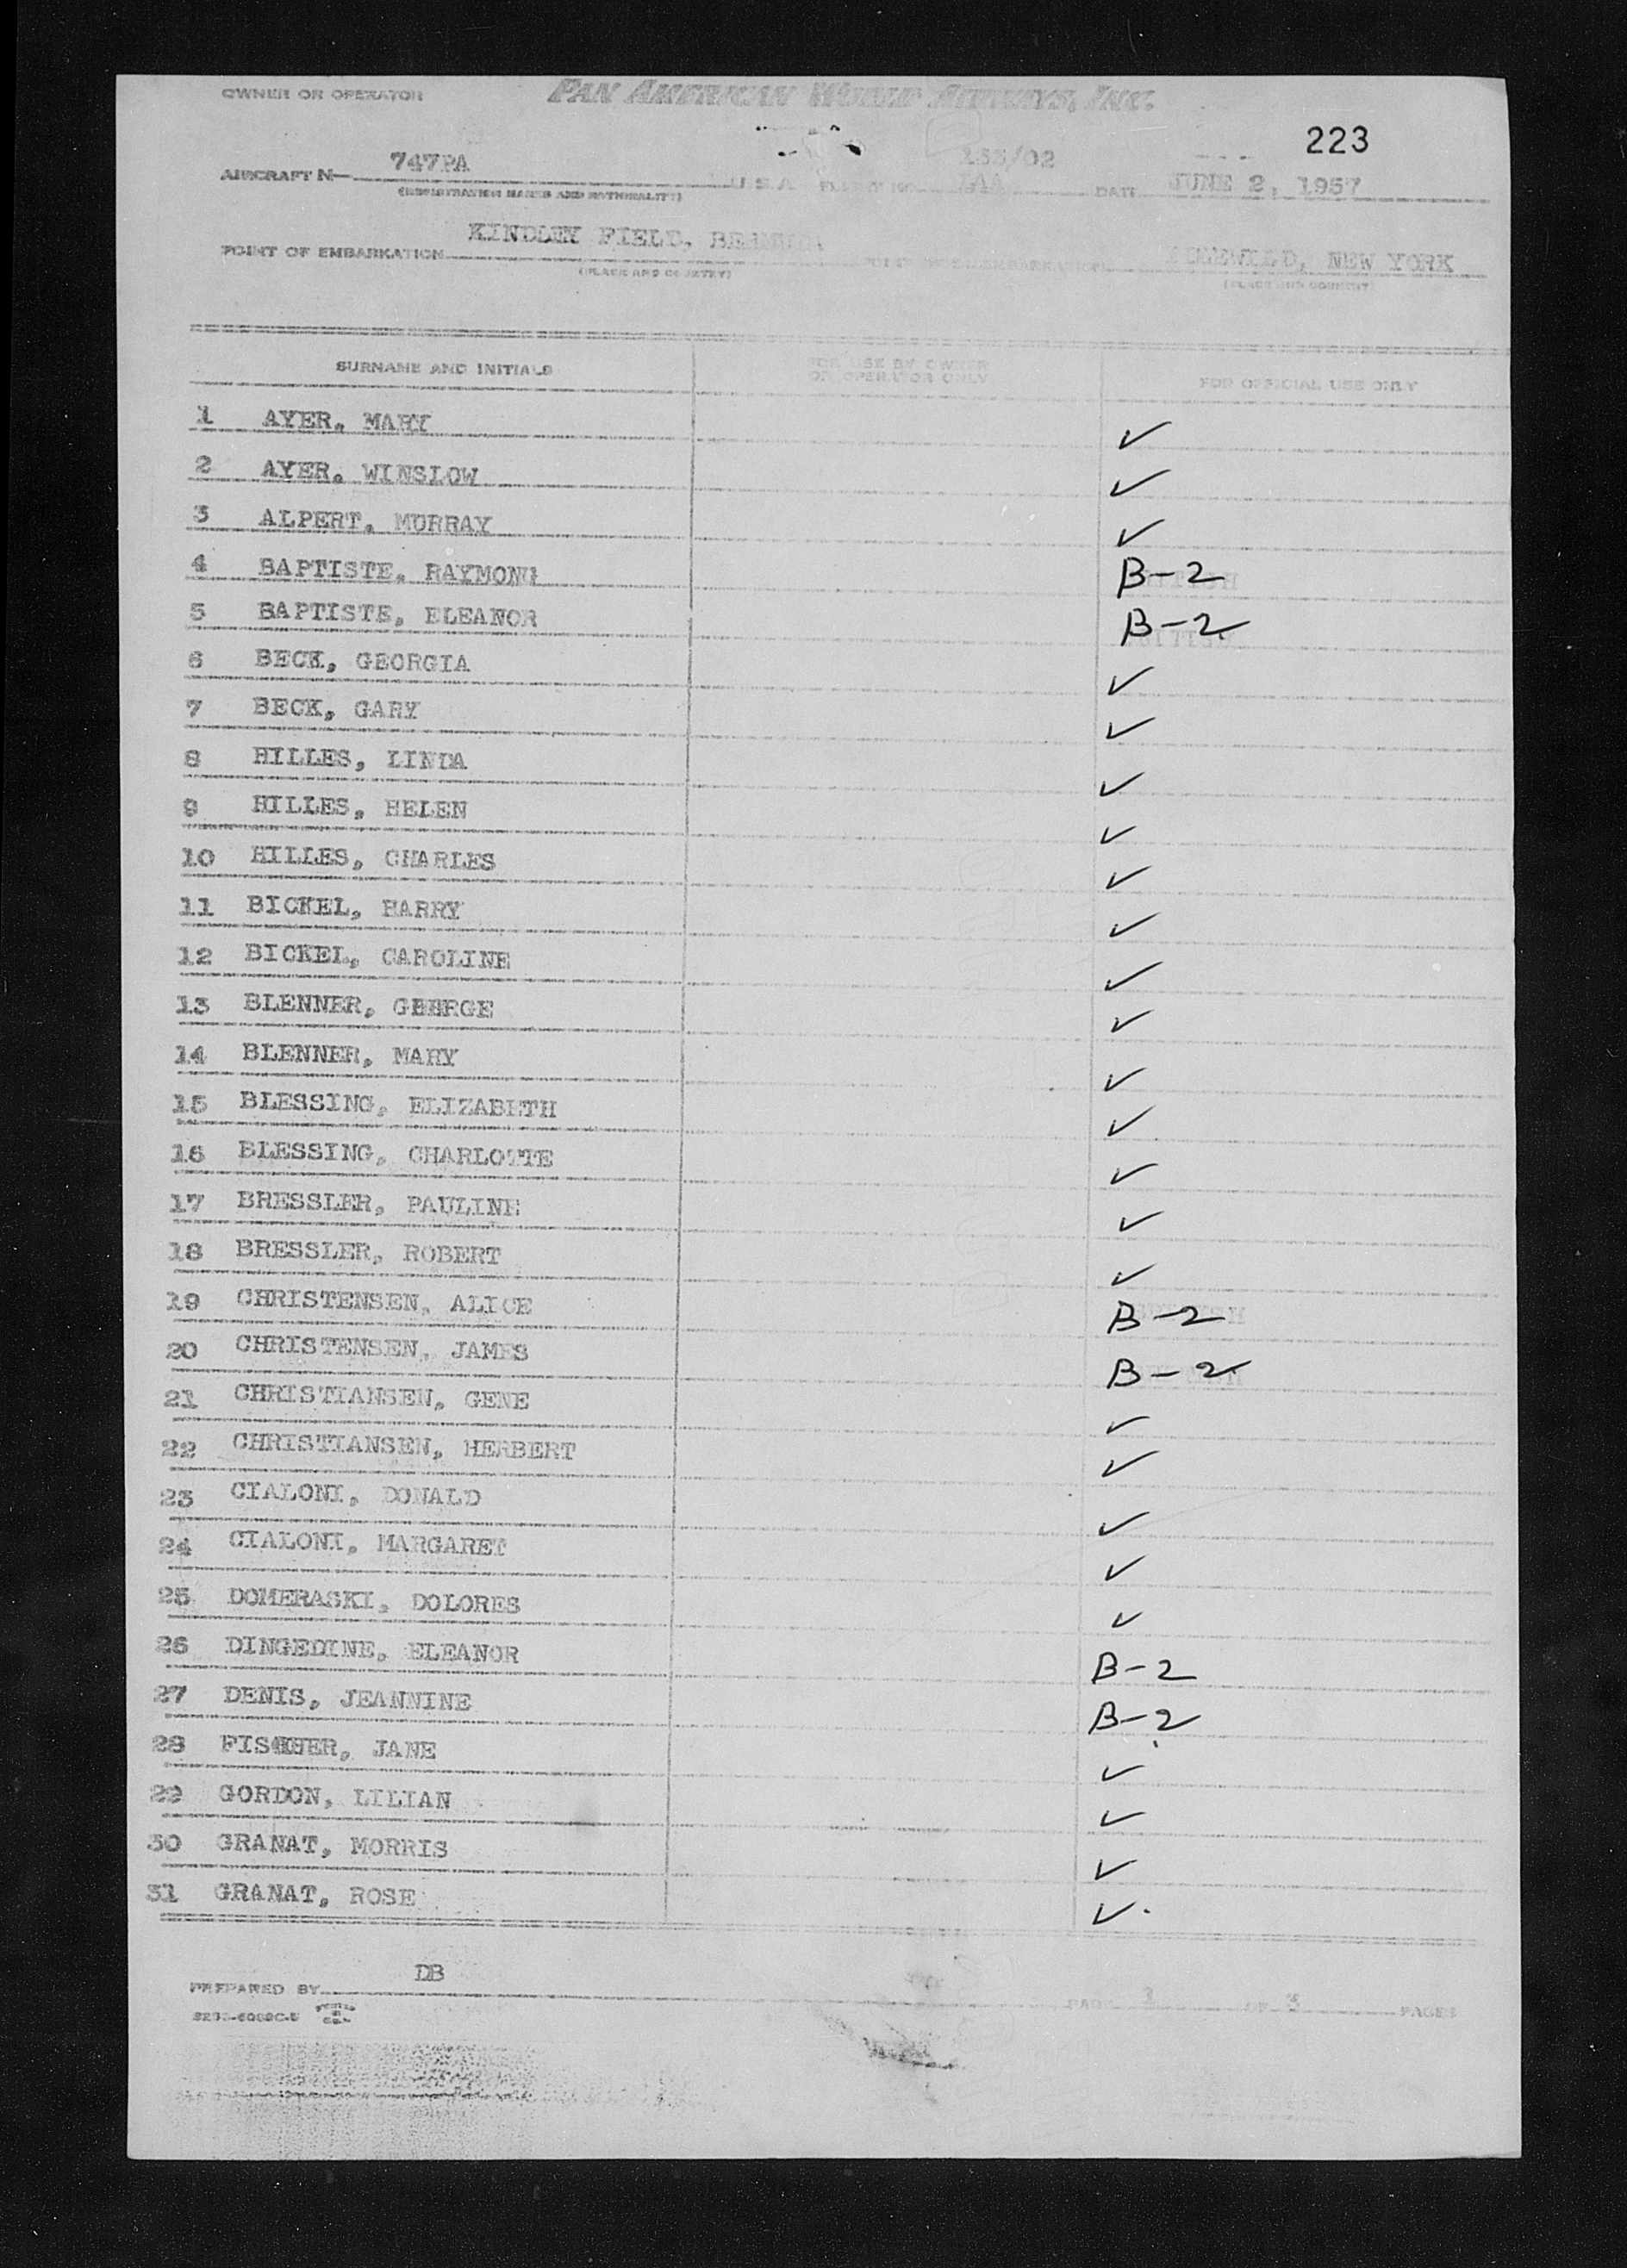 OWNER OR OPERATOR PAN AMERICAN WORLD AIRWAYS, INC.
223
AIRCRAFT N— 747PA U S A FLIGHT NO. 133/02 DATE JUNE 2, 1957
(REGISTRATION MARKS AND NATIONALITY)
POINT OF EMBARKATION KINDLEY FIELD, BERMUDA POINT OF DISEMBARKATION IDLEWILD, NEW YORK
(PLACE AND COUNTRY) (PLACE AND COUNTRY)
SURNAME AND INITIALS FOR USE BY OWNER OR OPERATOR ONLY FOR OFFICIAL USE ONLY
1 AYER, MARY ✓
2 AYER, WINSLOW ✓
3 ALPERT, MURRAY ✓
4 BAPTISTE, RAYMOND B-2
5 BAPTISTE, ELEANOR B-2
6 BECK, GEORGIA ✓
7 BECK, GARY ✓
8 HILLES, LINDA ✓
9 HILLES, HELEN ✓
10 HILLES, CHARLES ✓
11 BICKEL, HARRY ✓
12 BICKEL, CAROLINE ✓
13 BLENNER, GEORGE ✓
14 BLENNER, MARY ✓
15 BLESSING, ELIZABETH ✓
16 BLESSING, CHARLOTTE ✓
17 BRESSLER, PAULINE ✓
18 BRESSLER, ROBERT ✓
19 CHRISTENSEN, ALICE B-2
20 CHRISTENSEN, JAMES B-2
21 CHRISTIANSEN, GENE ✓
22 CHRISTIANSEN, HERBERT ✓
23 CIALONI, DONALD ✓
24 CIALONI, MARGARET ✓
25 DOMERASKI, DOLORES ✓
26 DINGEDINE, ELEANOR B-2
27 DENIS, JEANNINE B-2
28 FISCHER, JANE ✓
29 GORDON, LILIAN ✓
30 GRANAT, MORRIS ✓
31 GRANAT, ROSE ✓
PREPARED BY DB PAGE 1 OF 3 PAGES